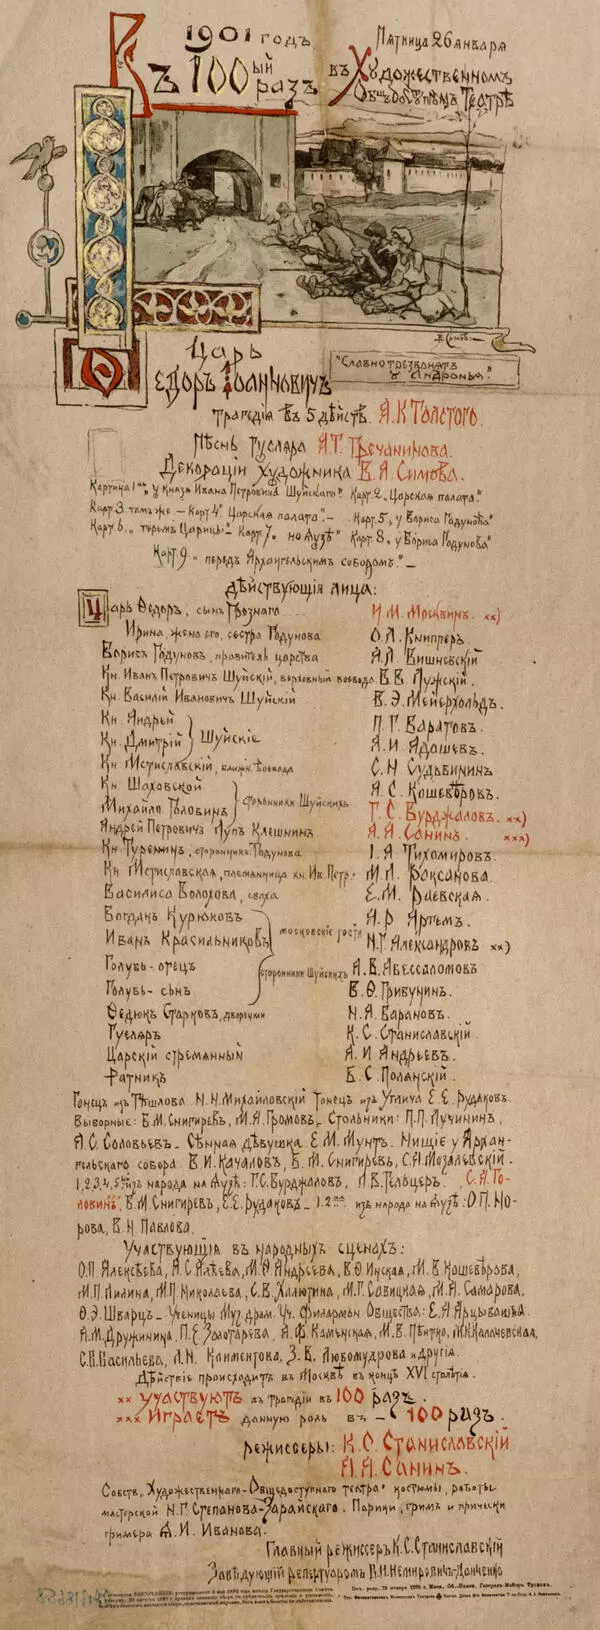 1901 годъ
Пятница 26 января
Въ 100ый разъ
въ Художественномъ
Общедоступномъ Театрѣ
В. Симовъ
"Славно трезвонятъ
у Андронья."
Царь
Ѳедоръ Іоанновичъ
трагедія въ 5 дѣйств. А. К. Толстого.
Пѣснь гусляра А. Т. Гречанинова.
Декораціи художника В. А. Симова.
Картина 1ая "у князя Ивана Петровича Шуйскаго". Карт. 2 "Царская палата."
Карт. 3 тамъ же. – Карт 4 "Царская палата". – Карт. 5 "у Бориса Годунова"
Карт 6 "теремъ Царицы" – Карт. 7 "на Яузѣ" Карт. 8 "у Бориса Годунова"
Карт 9 "передъ Архангельскимъ соборомъ." –
Дѣйствующія лица:
Царь Ѳедоръ, сынъ Грознаго И. М. Москвинъ. хх)
Ирина, жена его, сестра Годунова О. Л. Книпперъ.
Борисъ Годуновъ, правитель царства А. Л. Вишневскій
Кн. Иванъ Петровичъ Шуйскій, верховный воевода В. В. Лужскій.
Кн. Василій Ивановичъ Шуйскій В. Э. Мейерхольдъ.
Кн. Андрей П. Г. Баратовъ.
Кн. Дмитрій } Шуйскіе А. И. Адашевъ.
Кн. Мстиславскій, ближн. воевода С. Н. Судьбининъ
Кн. Шаховской А. С. Кошевѣровъ.
Михайло Головинъ } сторонники Шуйскихъ Г. С. Бурджаловъ. хх)
Андрей Петровичъ Лупъ Клешнинъ А. А. Санинъ. ххх)
Кн. Туренинъ, сторонникъ Годунова І. А. Тихомировъ.
Кн. Мстиславская, племянница кн. Ив. Петр. М. Л. Роксанова.
Василиса Волохова, сваха Е. М. Раевская.
Богданъ Курюковъ А. Р. Артемъ.
Иванъ Красильниковъ } московскіе гости Н. Г. Александровъ хх)
Голубь-отецъ сторонники Шуйскихъ А. В. Абессаломовъ
Голубь-сынъ В. Ѳ. Грибунинъ.
Ѳедюкъ Старковъ, дворецкій Н. А. Барановъ.
Гусляръ К. С. Станиславскій.
Царскій стремянный А. И. Андреевъ.
Ратникъ Б. С. Полянскій.
Гонецъ изъ Тѣшлова Н. Н. Михайловскій Гонецъ изъ Углича Е. Е. Рудаковъ.
Выборные: Б. М. Снигиревъ, М. А. Громовъ – Стольники: П. П. Лучининъ,
А. С. Соловьевъ – Сѣнная дѣвушка Е. М. Мунтъ. Нищіе у Архан-
гельскаго собора В. И. Качаловъ, Б. М. Снигиревъ, С. Л. Мозалевскій.
1, 2, 3, 4, 5ый изъ народа на Яузѣ: Г. С. Бурджаловъ, Л. В. Гельцеръ, С. А. Го-
ловинъ, Б. М. Снигиревъ, Е. Е. Рудаковъ – 1. 2ая изъ народа на Яузѣ: О. П. Но-
рова, В. Н. Павлова.
Участвующія въ народныхъ сценахъ:
О. П. Алексѣева, А. С. Алѣева, М. Ѳ. Андреева, В. Ѳ. Инская, М. В. Кошевѣрова,
М. П. Лилина, М. П. Николаева, С. В. Халютина, М. Г. Савицкая, М. А. Самарова,
Ф. Э. Шварцъ – Ученицы Муз. драм. Уч. Филармон Общества: Е. А. Арцыбашева
А. М. Дружинина, П. Е. Золотарева, А. Ф. Каменская, М. В. Пѣтко, М. Н. Калачевская,
С. В. Васильева, Л. N. Климентова, З. В. Любомудрова и другія.
Дѣйствіе происходитъ въ Москвѣ въ концѣ XVI столѣтія.
хх Участвуютъ въ трагедіи въ 100 разъ.
ххх Играетъ данную роль въ – 100 разъ.
режиссеры: К. С. Станиславскій
А. А. Санинъ.
Собств. "Художественнаго-Общедоступнаго театра" костюмы, работы
мастерской Н. Г. Степанова-Зарайскаго. Парики, гримъ и прически
гримера Я. И. Иванова.
Главный режиссеръ К. С. Станиславскій
Завѣдующій репертуаромъ В. И. Немировичъ-Данченко